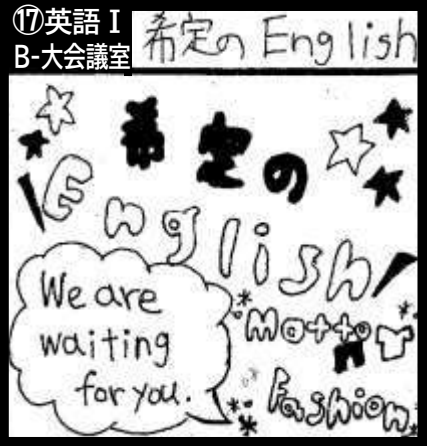 ⑰英語Ⅰ
B-大会議室
希定の English
希定の
English
We are
waiting
for you.
Matter
Fashion